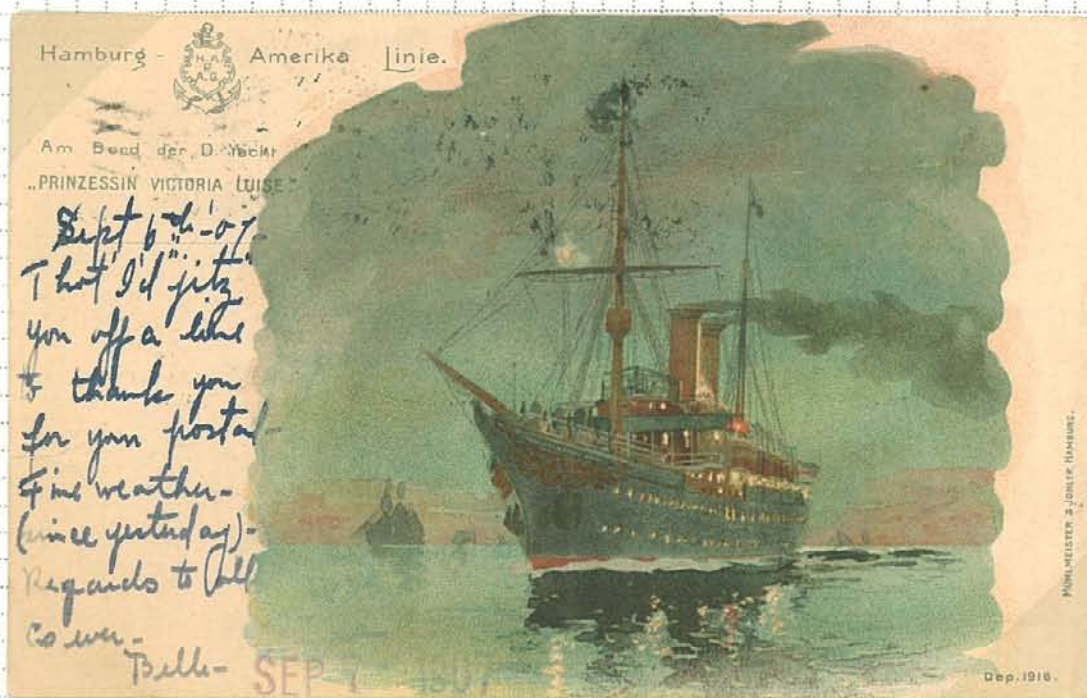 Hamburg - Amerika Linie.
H. A.
P.
A. G.
Am Bord der D. Yacht
„PRINZESSIN VICTORIA LUISE"
Sept 6th -07-
Thot I'd "jitz"
you off a line
to thank you
for your postal-
Fine weather-
(since yesterday)-
Regards to all
As ever-
Belle-
SEP 7 1907
MÜHLMEISTER & JOHLER, HAMBURG.
Dep. 1916.